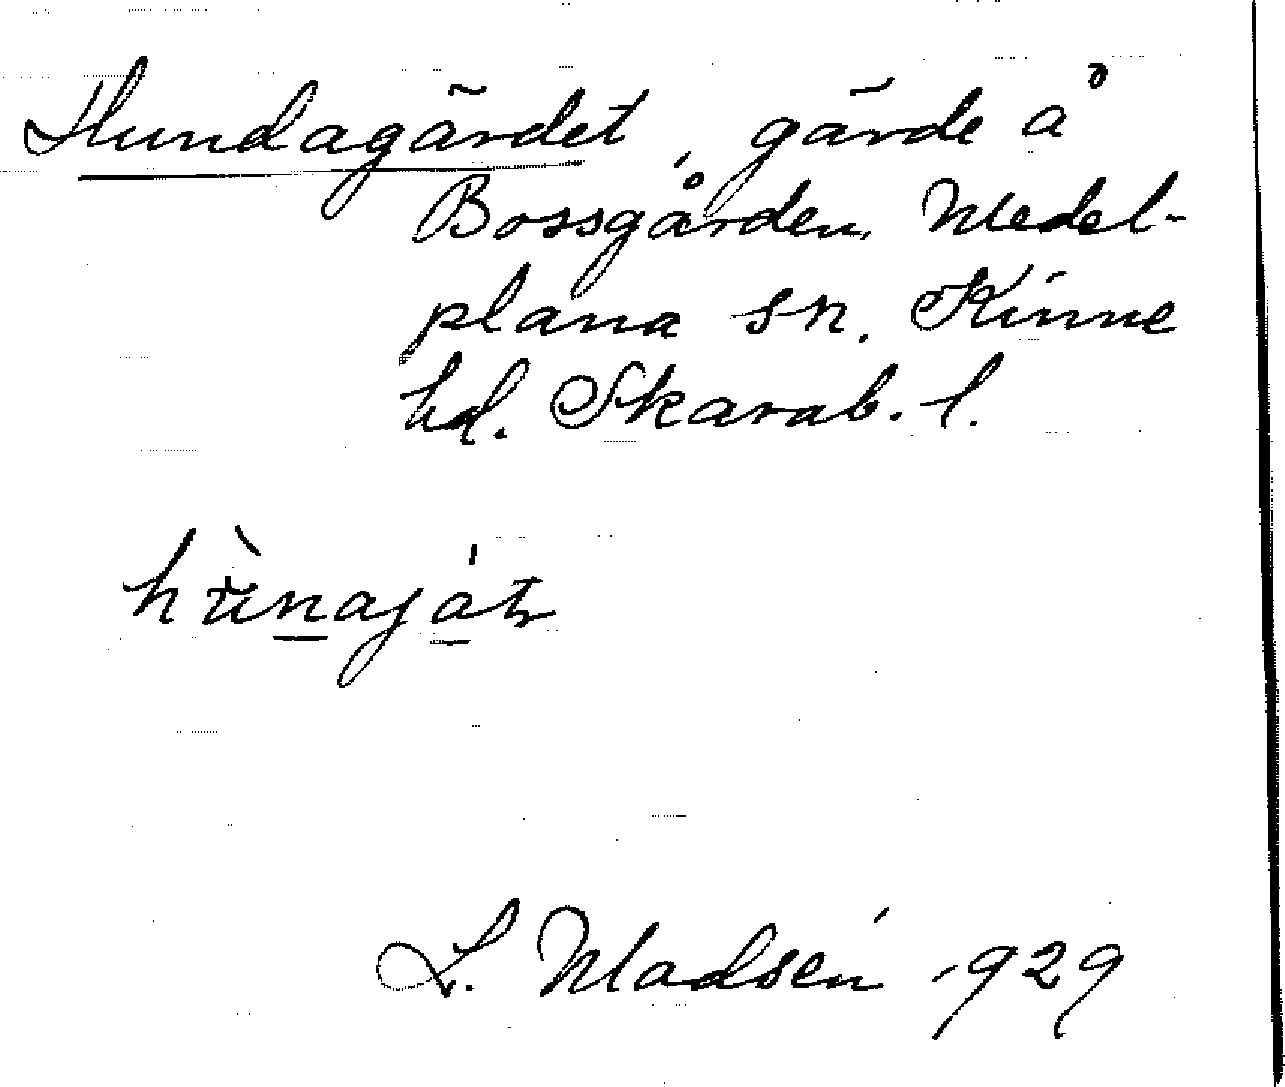 Hundagärdet, gärde å
Bossgården, Medel-
plana sn. Kinne
hd. Skarab. l.
L. Madsén 1929